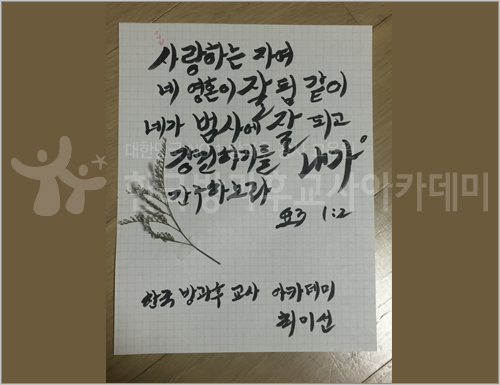 사랑하는 자여
네 영혼이 잘됨 같이
네가 범사에 잘 되고
강건하기를 내가
간구하노라
요3 1:2
한국 방과후 교사 아카데미
최미선
대한민국
한국방과후교사아카데미